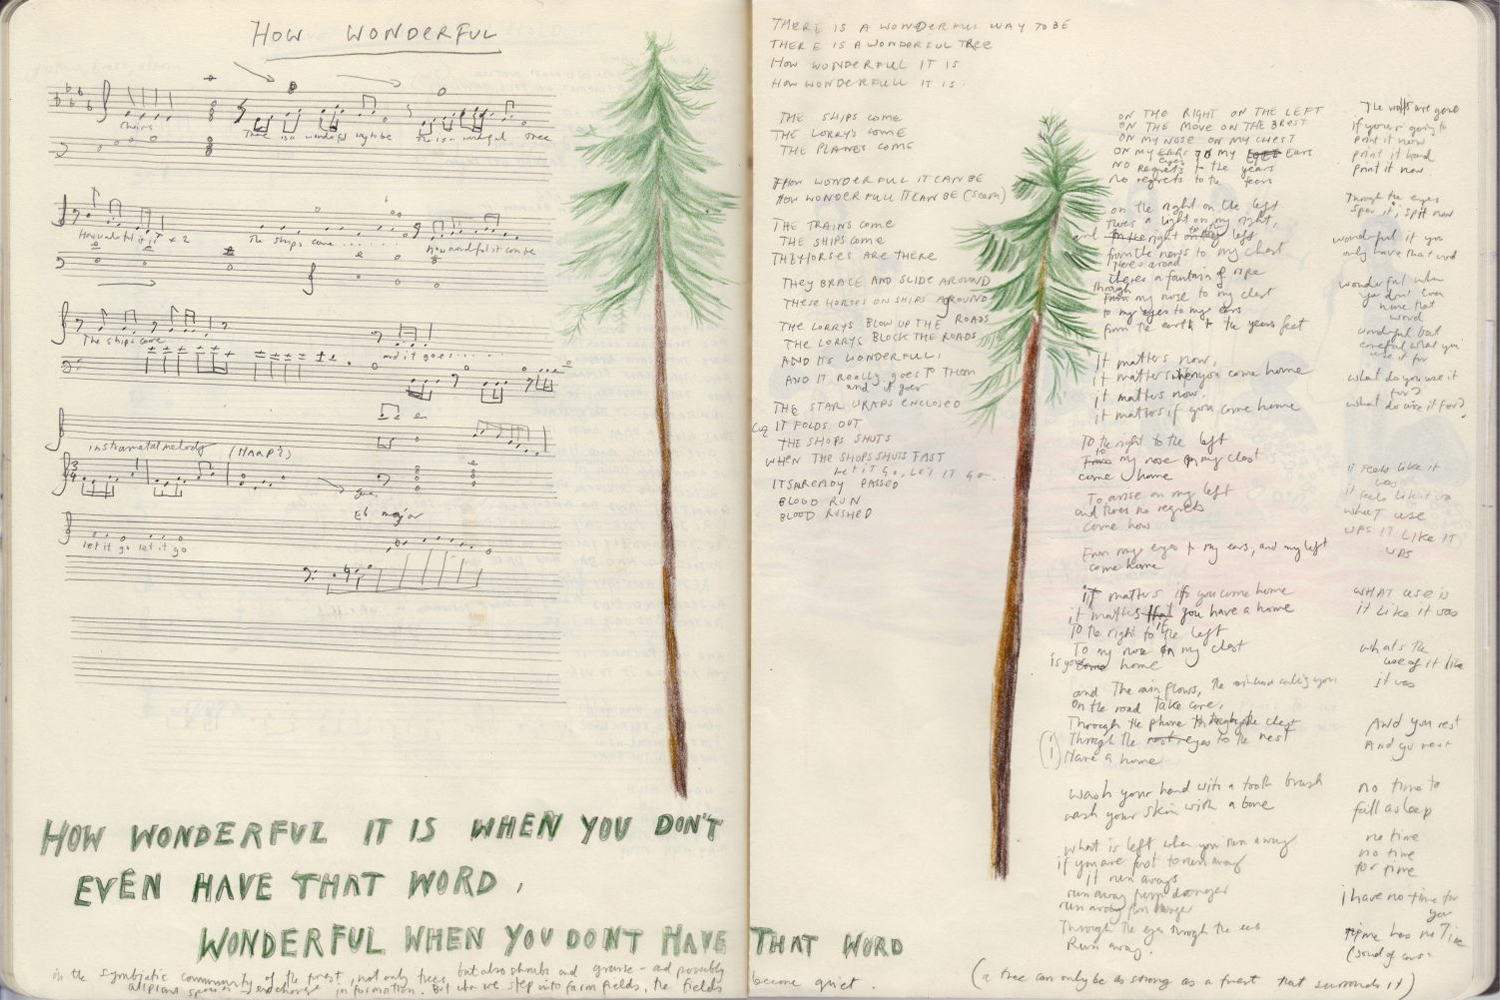 HOW WONDERFUL
Choirs
There is a wonderful way to be
There is a wonderful tree
How wonderful it is x 2
The ships come ........
how wonderful it can be
The ships come
and it goes ....
instrumental melody (HARP?)
Eb major
let it go let it go
HOW WONDERFUL IT IS WHEN YOU DON'T
EVEN HAVE THAT WORD,
WONDERFUL WHEN YOU DONT HAVE THAT WORD
in the symbiotic community of the forest, not only trees but also shrubs and grasses - and possibly
all plant species - exchange information. But when we step into farm fields, the fields
become quiet.
(a tree can only be as strong as a forest that surrounds it)
THERE IS A WONDERFUL WAY TO BE
THERE IS A WONDERFUL TREE
HOW WONDERFUL IT IS
HOW WONDERFULL IT IS.
THE SHIPS COME
THE LORRYS COME
THE PLANES COME
HOW WONDERFUL IT CAN BE
HOW WONDERFULL IT CAN BE (
THE TRAINS COME
THE SHIPS COME
THE HORSES ARE THERE
THEY BRACE AND SLIDE AROUND
THESE HORSES ON SHIPS AGROUND
THE LORRYS BLOW UP THE ROADS
THE LORRYS BLOCK THE ROADS
AND ITS WONDERFULL
AND IT REALLY GOES TO THEM
and it goes
THE STAR WRAPS ENCLOSED
IT FOLDS OUT
THE SHOPS SHUTS
WHEN THE SHOPS SHUTS FAST
Let it go, LET IT GO
ITS ALREADY PASSED
BLOOD RUN
BLOOD RUSHED
ON THE RIGHT ON THE LEFT
ON THE MOVE ON THE BREST
ON MY NOSE ON MY CHEST
ON MY EARS TO MY EYES Ears
NO Regrets to the years
no regrets to the years
on the right on the left
theres a light on my right,
and to the right on my left
from the nose to my chest
theres a fountain of rope
through my nose to my chest
to my eyes to my ears
from the earth to the years feet
It matters now,
it matters when you come home
it matters now.
it matters if you come home
To the right to the left
to my nose on my chest
come home
To arise on my left
and theres no regrets
come home
From my eyes to my ears, and my left
come home
it matters if you come home
it matters that if you have a home
To the right to the left
To my nose on my chest
is your come home
and The rain flows, the
on the road take care,
Through the phone through the chest
(1) Through the nose eyes to the nest
Have a home
Wash your hand with a tooth brush
wash your skin with a bone
what is left when you run away
if you are first to run away
it run aways
run away from danger
run away from danger
Through the eyes through the
Run away.
The wolfs are gone
if your going to
print it now
print it hard
print it now
Through the eyes
spit it, spit now
wonderful if you
only have that word
wonderful when
you don't even
have that
word
wonderful but
careful what you
use it for
what do you use it
for?
what do use it for?
it feels like it
was
it feels like it was
what use
WAS IT LIKE IT
WAS
WHAT use is
it Like it was
whats the
use of it like
it was
And you rest
And you rest
no time to
fall asleep
no time
no time
for time
I have no time for
you
time has no Time
(sound of